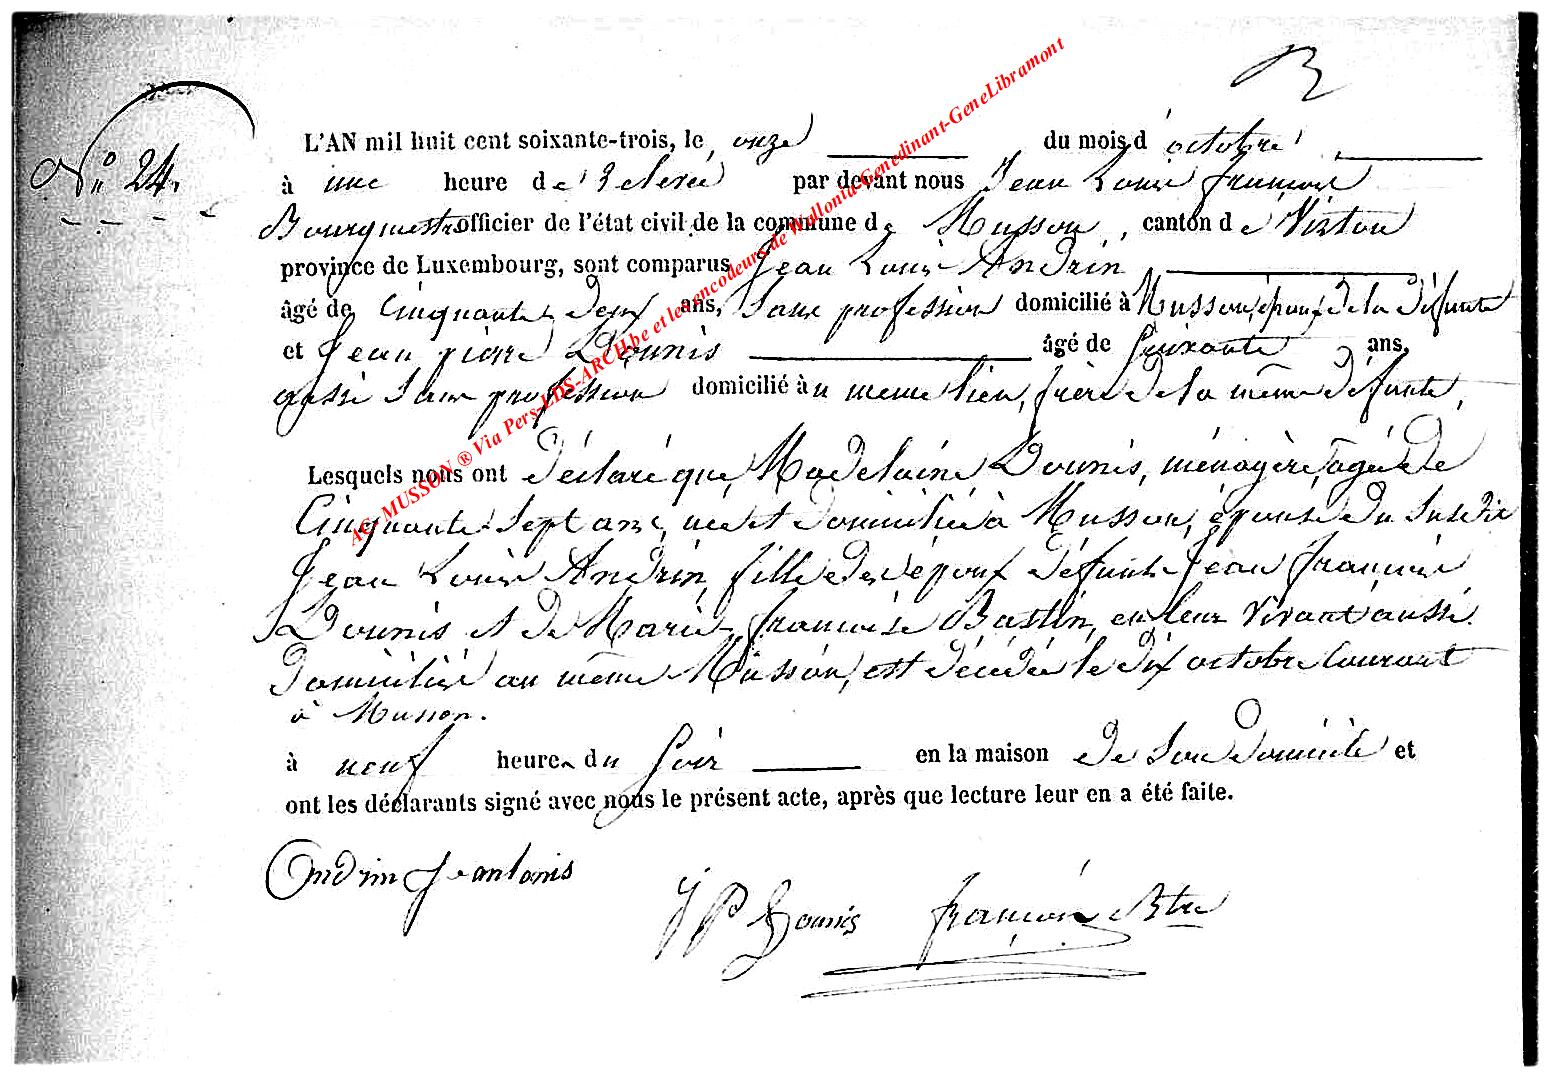 N° 24.
L'AN mil huit cent soixante-trois, le onze du mois d'octobre
à une heure de relevée par devant nous Jean Louis François
Bourgmestre officier de l'état civil de la commune de Musson, canton de Virton
province de Luxembourg, sont comparus Jean Louis Andrin
âgé de Cinquante deux ans, sans profession domicilié à Musson, époux de la défunte
et Jean pierre Lounis âgé de soixante ans,
aussi sans profession domicilié au même lieu, frère de la même défunte,
Lesquels nous ont déclaré que Madelaine Lounis, ménagère, agée de
Cinquante-sept ans, née et domiciliée à Musson, épouse du susdit
Jean Louis Andrin, fille des époux défunts Jean françois
Lounis et de Marie françoise Bastin, en leur vivant aussi
domiciliés au même Musson, est décédée le dix octobre Courant
à Musson.
à neuf heures du soir en la maison de son domicile et
ont les déclarants signé avec nous le présent acte, après que lecture leur en a été faite.
Andrin Jean louis
JP Lounis François Btre
AC MUSSON ® Via Pers-LDS-ARCH.be et les encodeurs de Wallonia-Genedinant-GeneLibramont